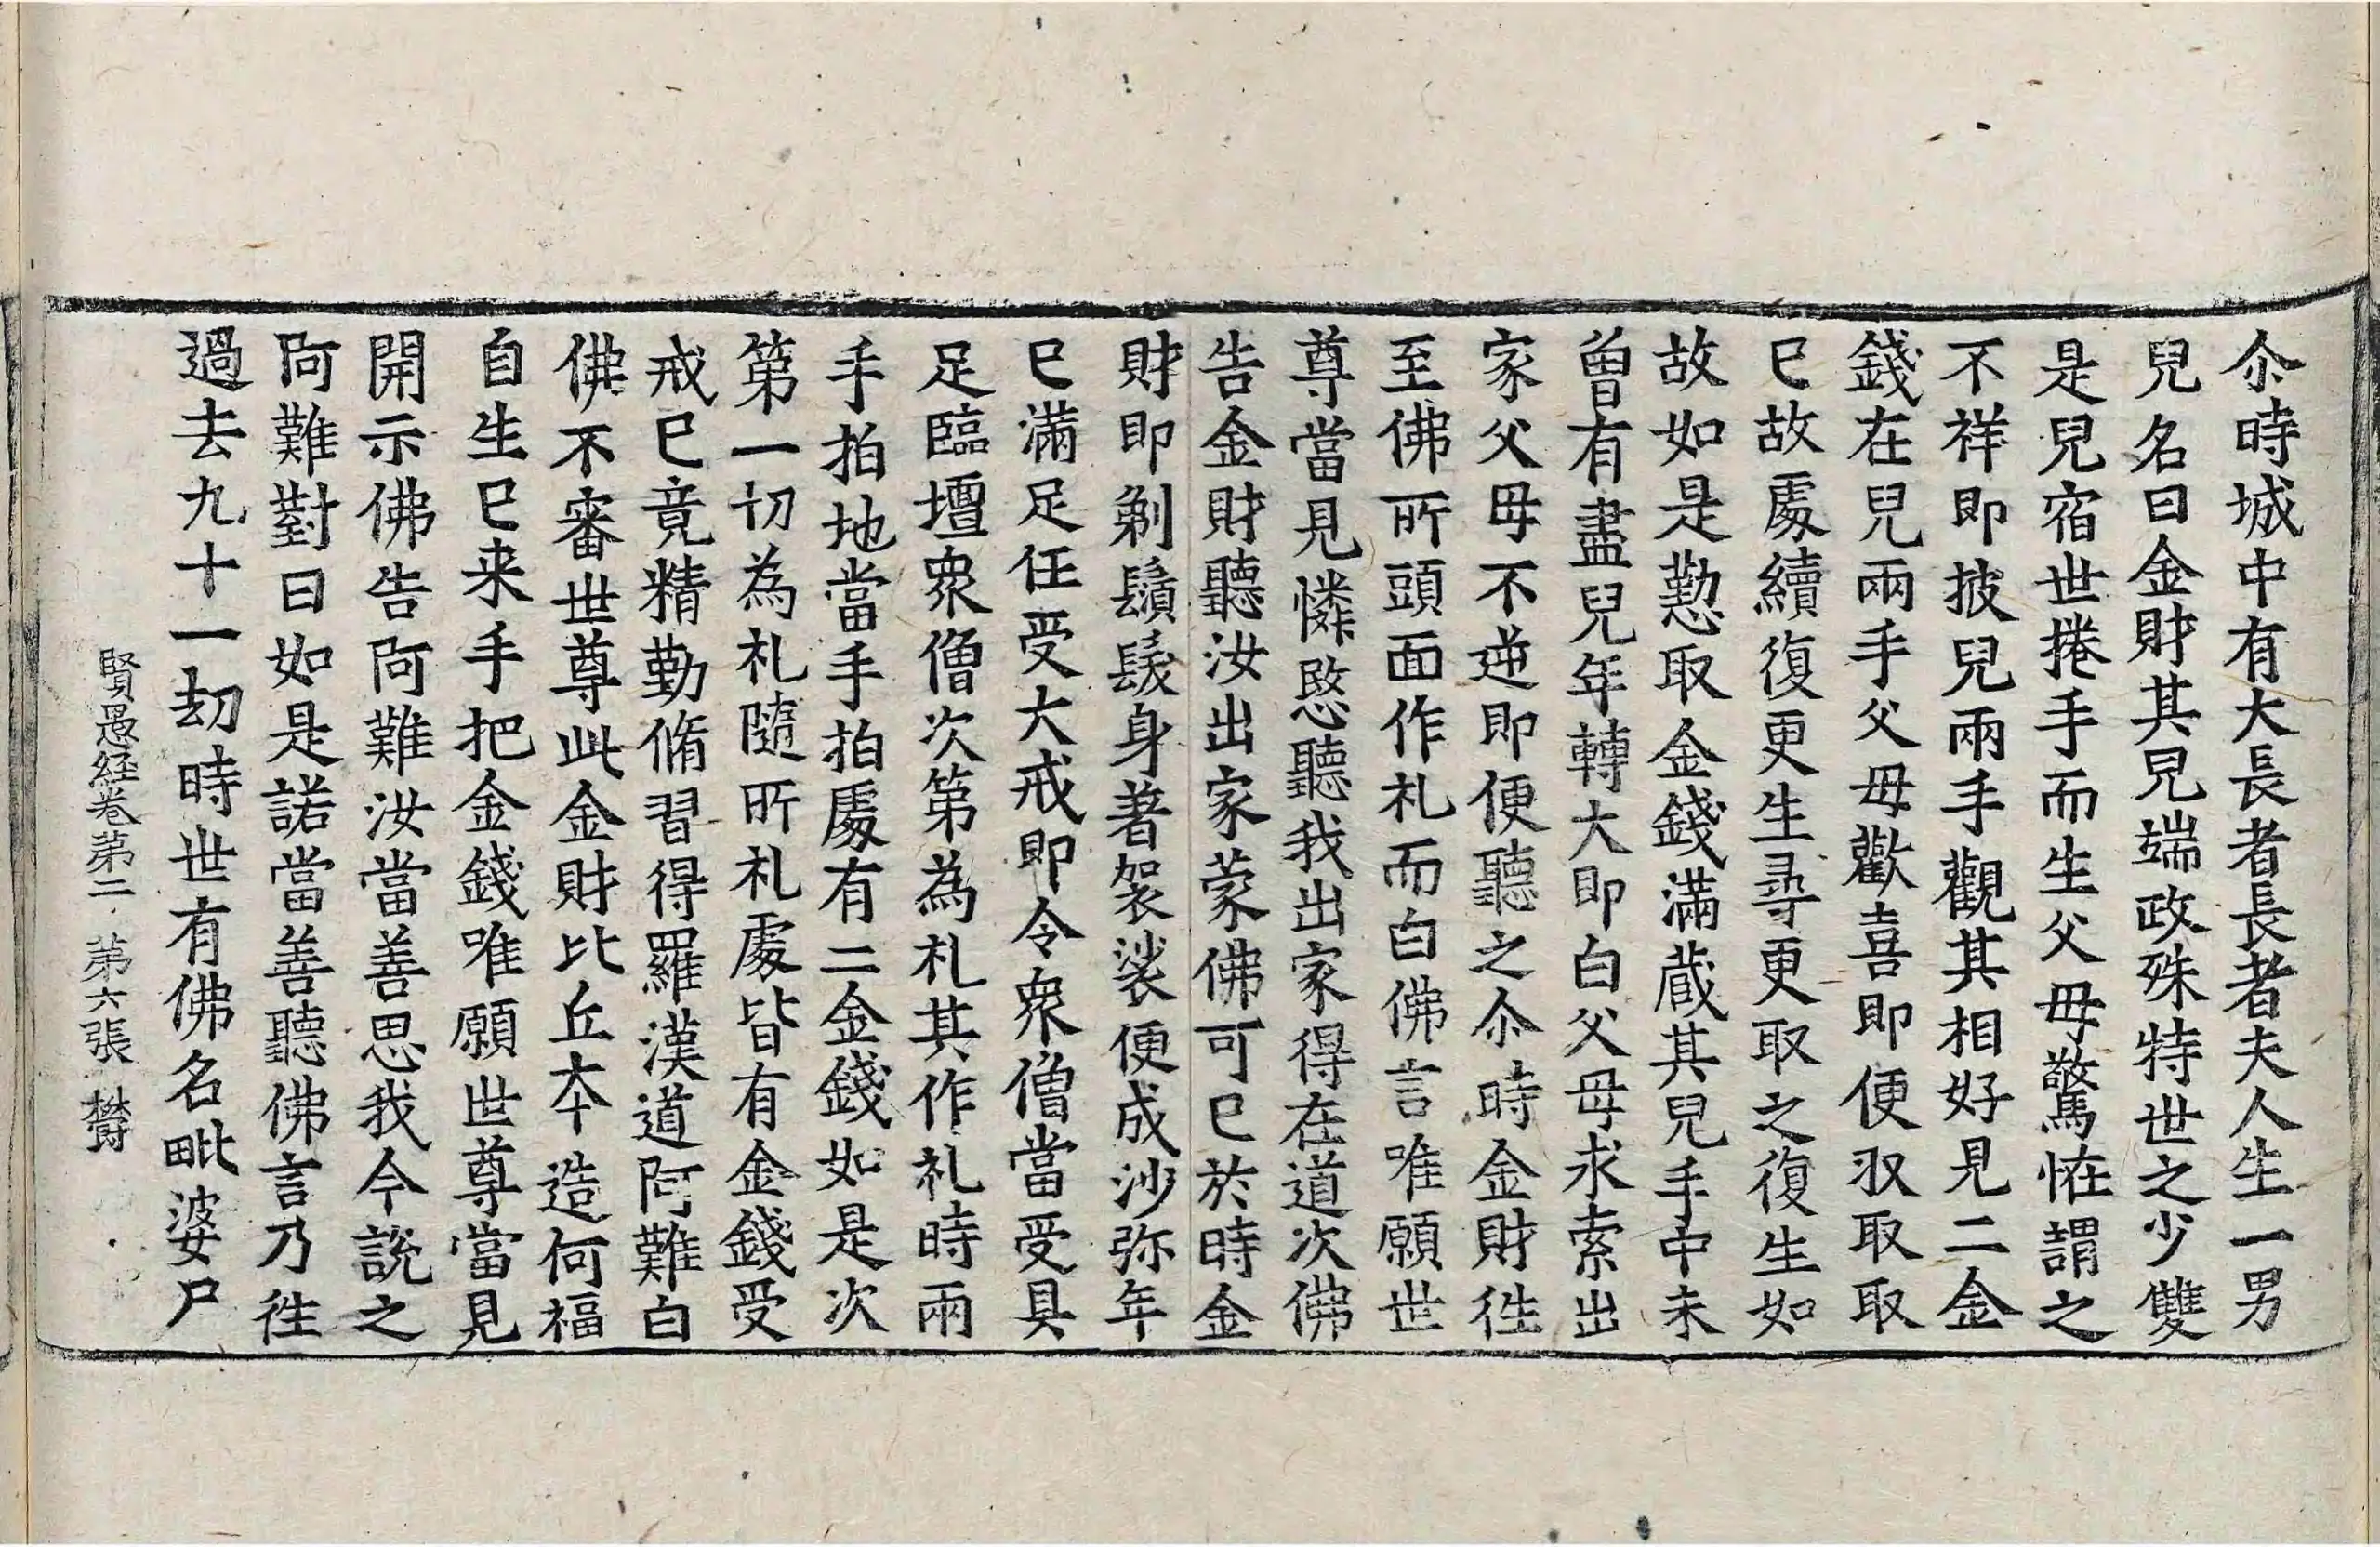 尒時城中有大長者長者夫人生一男
兒名曰金財其兒端政殊特世之少雙
是兒宿世捲手而生父母驚恠謂之
不祥即披兒兩手觀其相好見二金
錢在兒兩手父母歡喜即便収取取
已故處續復更生尋更取之復生如
故如是懃取金錢滿蔵其兒手中未
曾有盡兒年轉大即白父母求索出
家父母不逆即便聽之尒時金財徃
至佛所頭面作礼而白佛言唯願世
尊當見憐愍聽我出家得在道次佛
告金財聽汝出家蒙佛可已於時金
財即剃鬚髮身著袈裟便成沙弥年
已滿足任受大戒即令衆僧當受具
足臨壇衆僧次第為礼其作礼時兩
手拍地當手拍處有二金錢如是次
第一切為礼隨所礼處皆有金錢受
戒已竟精勤脩習得羅漢道阿難白
佛不審世尊此金財比丘夲造何福
自生已来手把金錢唯願世尊當見
開示佛告阿難汝當善思我今說之
阿難對曰如是諾當善聽佛言乃徃
過去九十一劫時世有佛名毗婆尸
賢愚経卷第二 第六張 欝